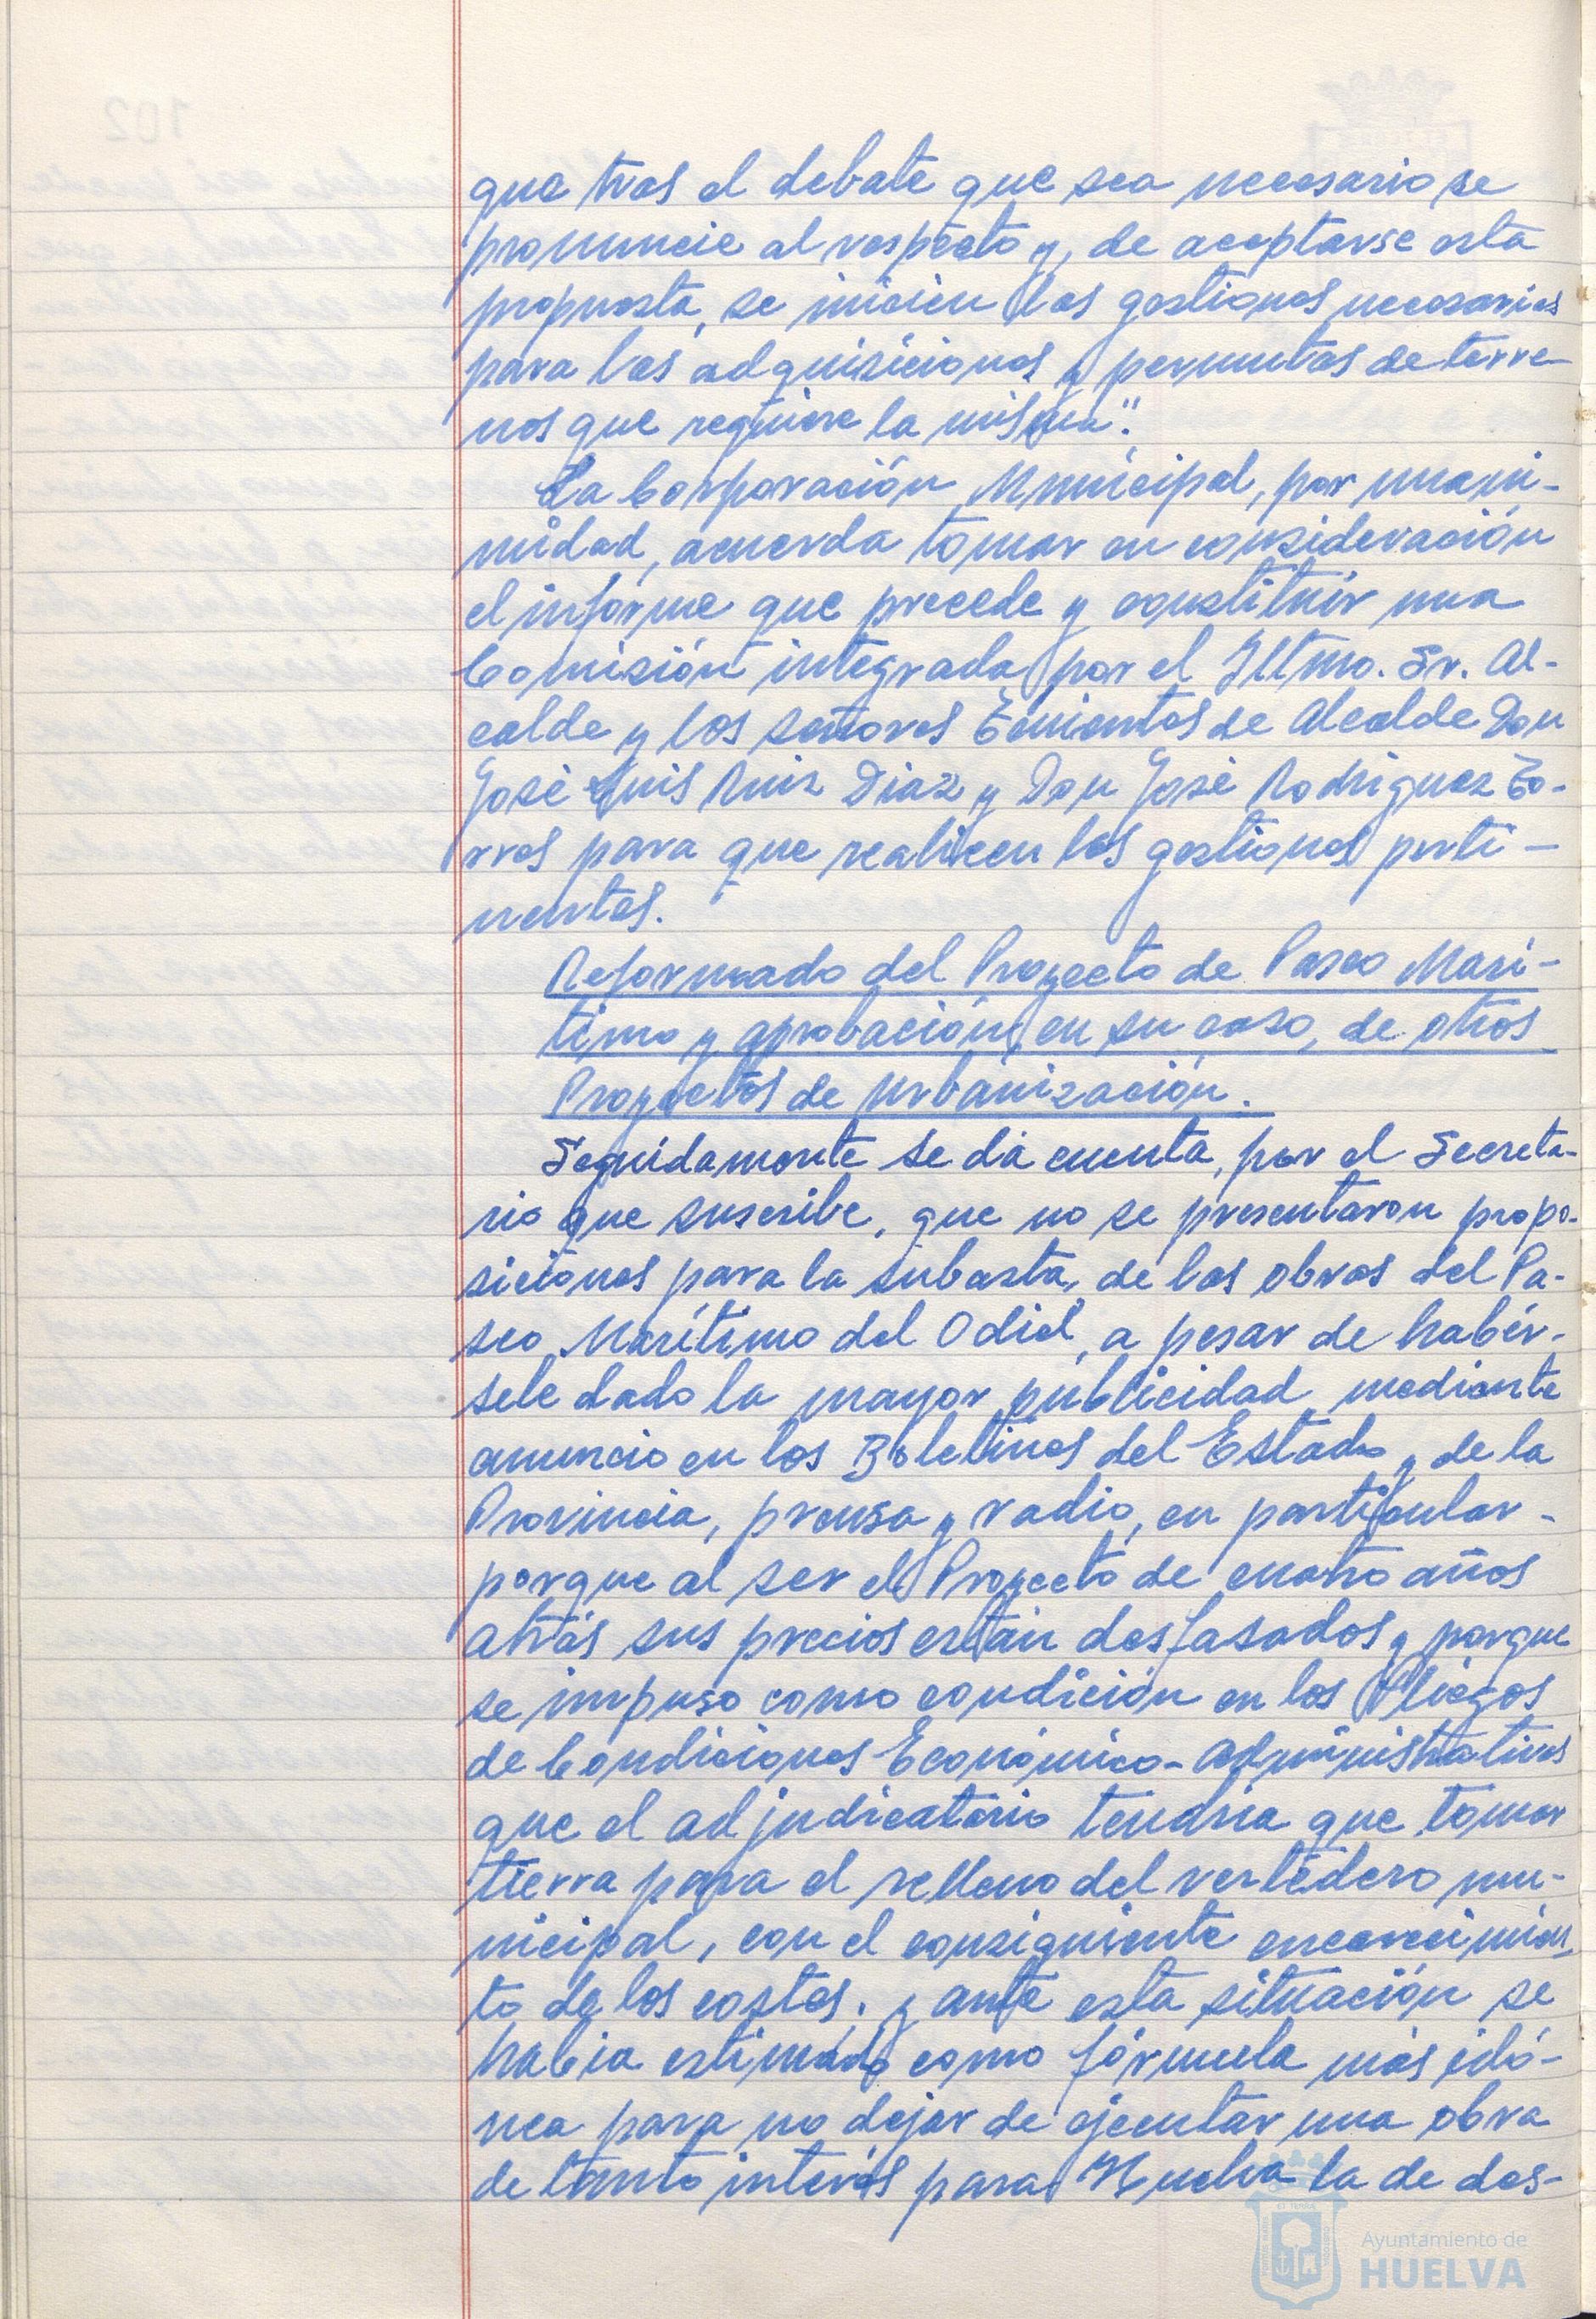 que tras el debate que sea necesario se
pronuncie al respecto y, de aceptarse esta
propuesta, se inicien las gestiones necesarias
para las adquisiciones y permutas de terre-
nos que requiere la misma".
La Corporación Municipal, por unani-
midad, acuerda tomar en consideración
el informe que precede y constituir una
Comisión integrada por el Iltmo. Sr. Al-
calde y los señores Tenientes de Alcalde Don
José Luis Ruiz Díaz y Don José Rodríguez To-
rres para que realicen las gestiones perti-
nentes.
Reformado del Proyecto de Paseo Marí-
timo y aprobación, en su caso, de otros
Proyectos de Urbanización.
Seguidamente se dá cuenta, por el Secreta-
rio que suscribe, que no se presentaron propo-
siciones para la subasta, de las obras del Pa-
seo Marítimo del Odiel, a pesar de habér-
sele dado la mayor publicidad mediante
anuncio en los Boletines del Estado y de la
Provincia, prensa y radio, en particular -
porque al ser el Proyecto de cuatro años
atrás sus precios están desfasados y porque
se impuso como condición en los Pliegos
de Condiciones Económico-Administrativas
que el adjudicatario tendría que tomar
tierra para el relleno del vertedero mu-
nicipal, con el consiguiente encarecimien-
to de los costes; y ante esta situación se
había estimado como fórmula más idó-
nea para no dejar de ejecutar una obra
de tanto interés para Huelva la de des-
Ayuntamiento de
HUELVA